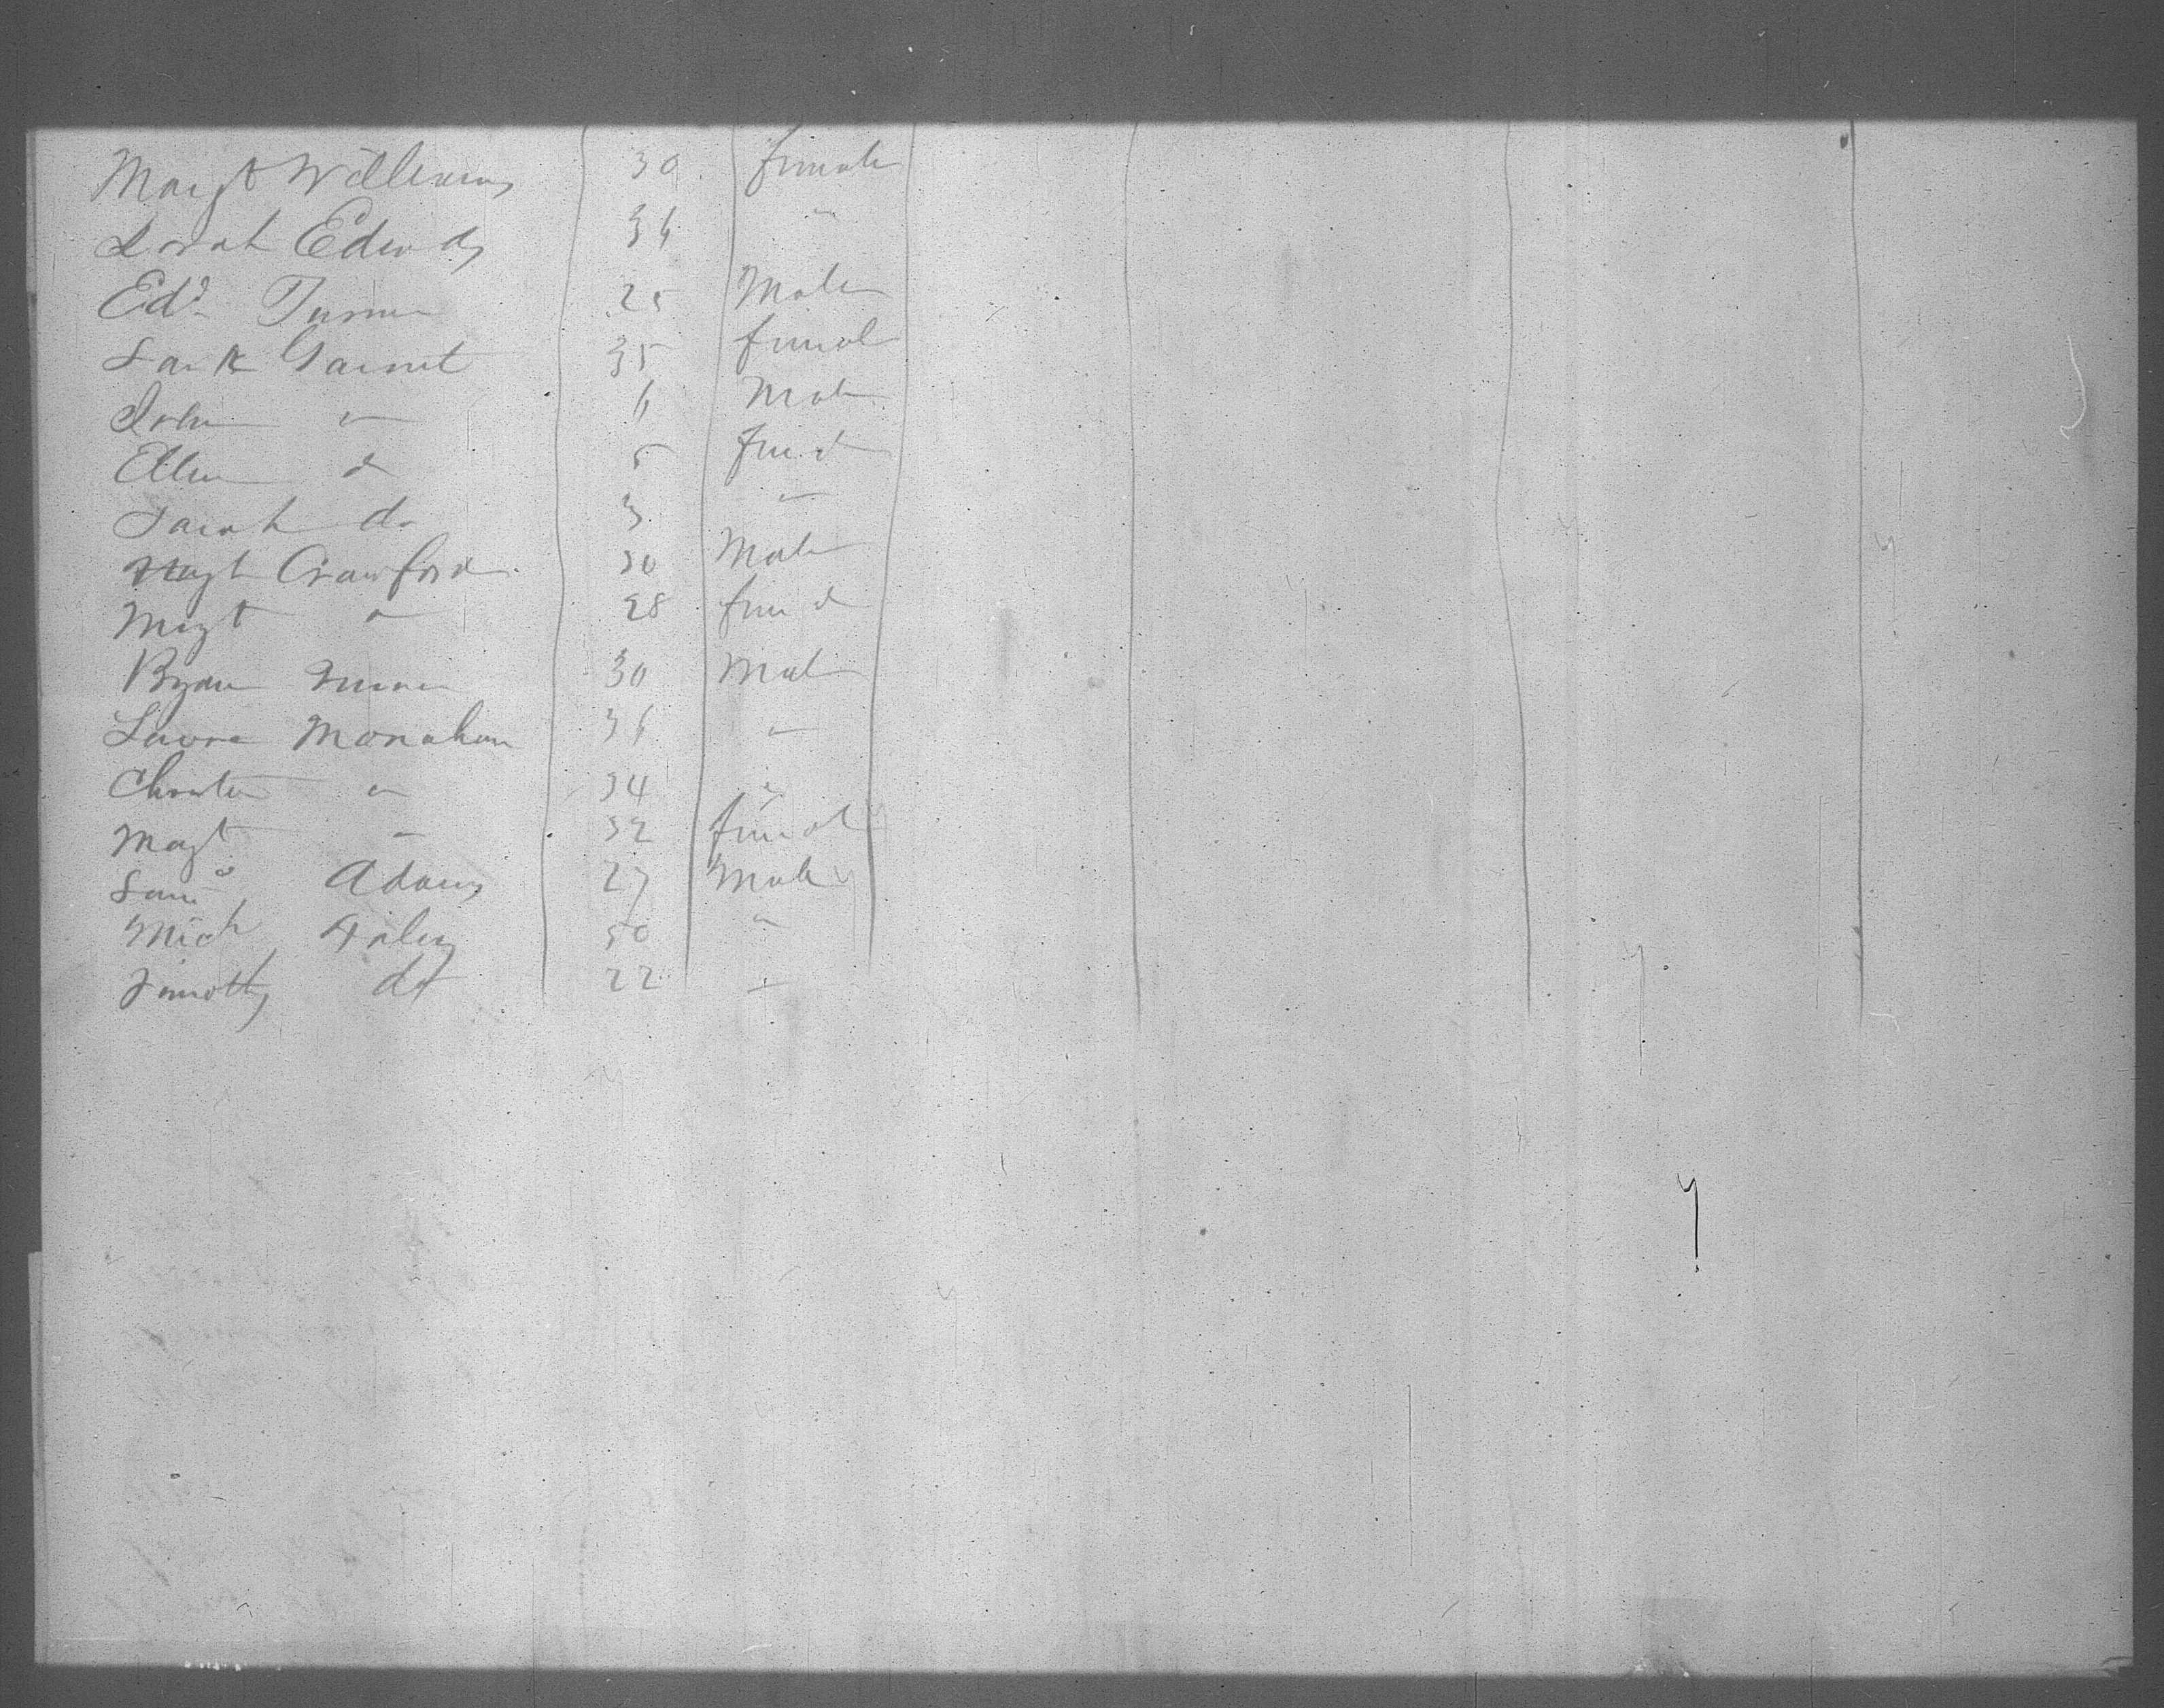 Margt Williams 30 female
Sarah Edwds 36 "
Edd. Turner 25 Male
Garnet 35 femal
John " 6 Male
Ellen do 5 
Sarah do 3 "
Crawford 30 Male
Margt " 28
Bryan 30 Male
Monahan 36 "
" 34 "
Magt " 32 femal
Saml Adams 27 Male
Mich Foley 50 "
Timothy do 22 "